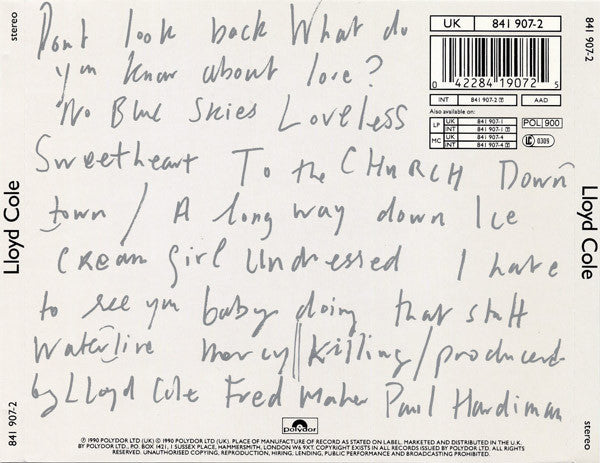 stereo
841 907-2
Lloyd Cole
Dont look back What do
you know about love?
No Blue Skies Loveless
Sweetheart To the CHURCH Down
town / A long way down Ice
Cream girl Undressed I hate
to see you baby doing that stuff
Waterline mercy || killing / produced
by LLoyd Cole Fred Maher Paul Hardiman
UK 841 907-2
0 42284 19072 5
INT 841 907-2 AAD
Also available on:
LP UK 841 907-1
INT 841 907-1
MC UK 841 907-4
INT 841 907-4
POL 900
LC 0309
841 907-2
Lloyd Cole
stereo
polydor
℗ 1990 POLYDOR LTD (UK) © 1990 POLYDOR LTD (UK). PLACE OF MANUFACTURE OF RECORD AS STATED ON LABEL. MARKETED AND DISTRIBUTED IN THE U.K.
BY POLYDOR LTD., P.O. BOX 1421, 1 SUSSEX PLACE, HAMMERSMITH, LONDON W6 9XT. COPYRIGHT EXISTS IN ALL RECORDS ISSUED BY POLYDOR LTD.
UNAUTHORISED COPYING, REPRODUCTION, HIRING, LENDING, PUBLIC PERFORMANCE AND BROADCASTING PROHIBITED.